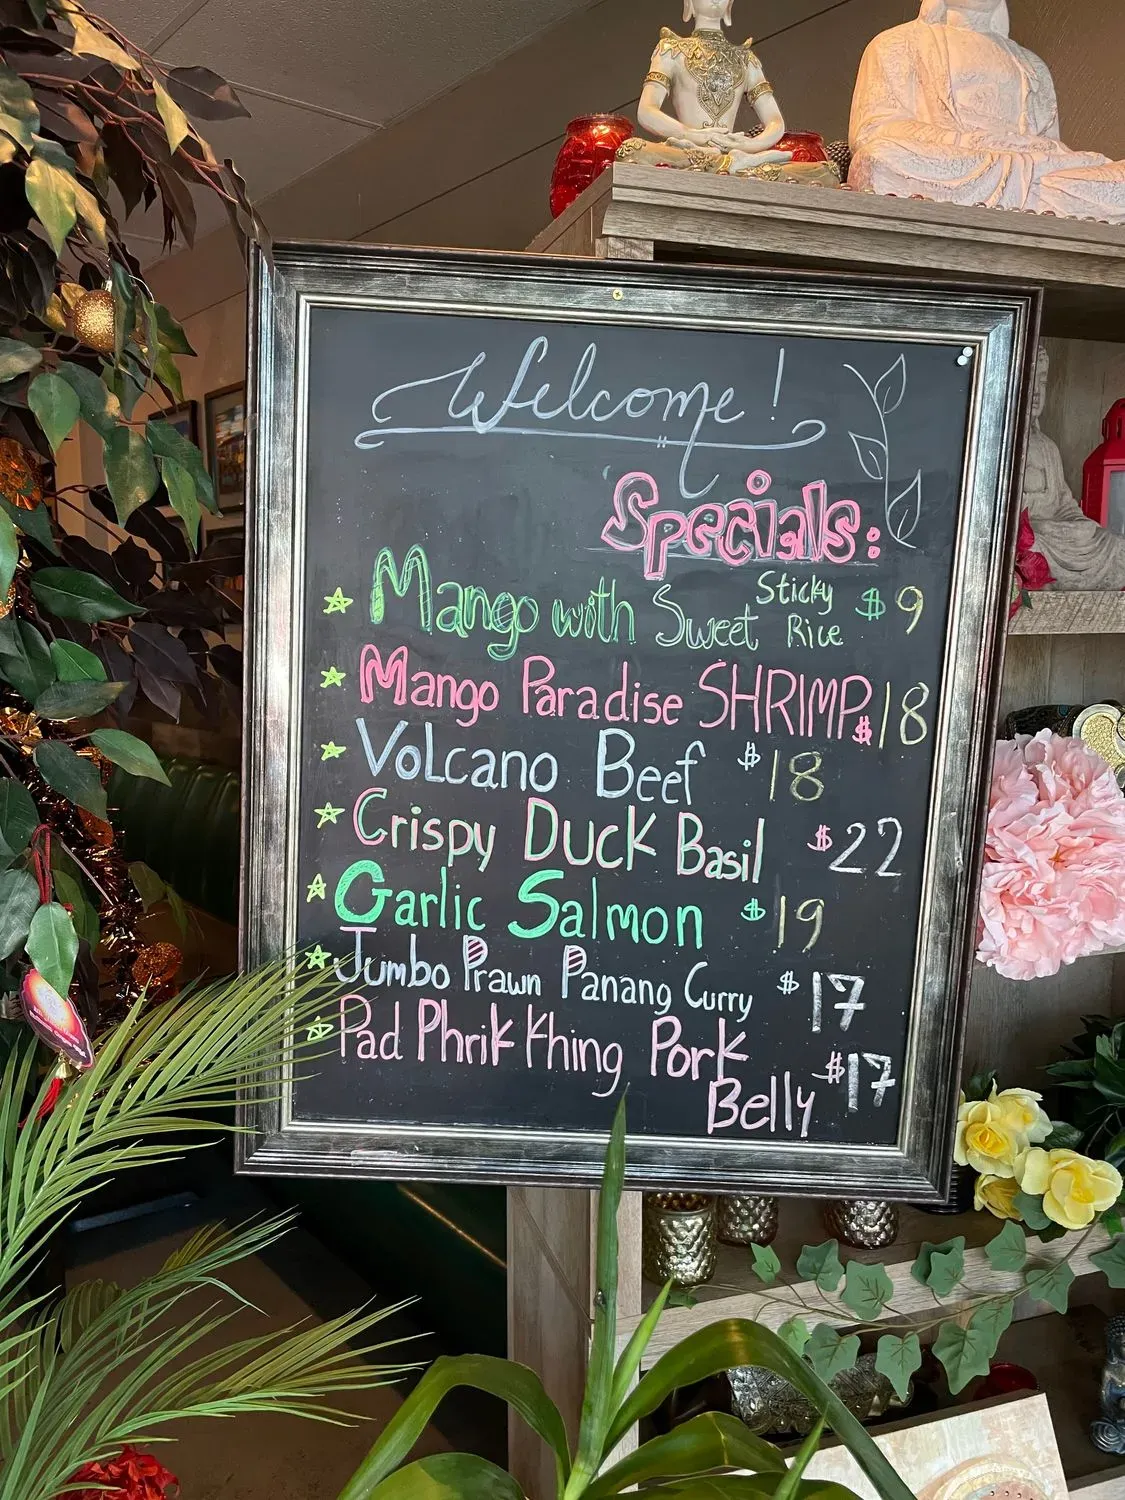 Welcome!
Specials:
Mango with Sweet Sticky Rice $9
Mango Paradise SHRIMP $18
Volcano Beef $18
Crispy Duck Basil $22
Garlic Salmon $19
Jumbo Prawn Panang Curry $17
Pad Phrik Khing Pork $17
Belly